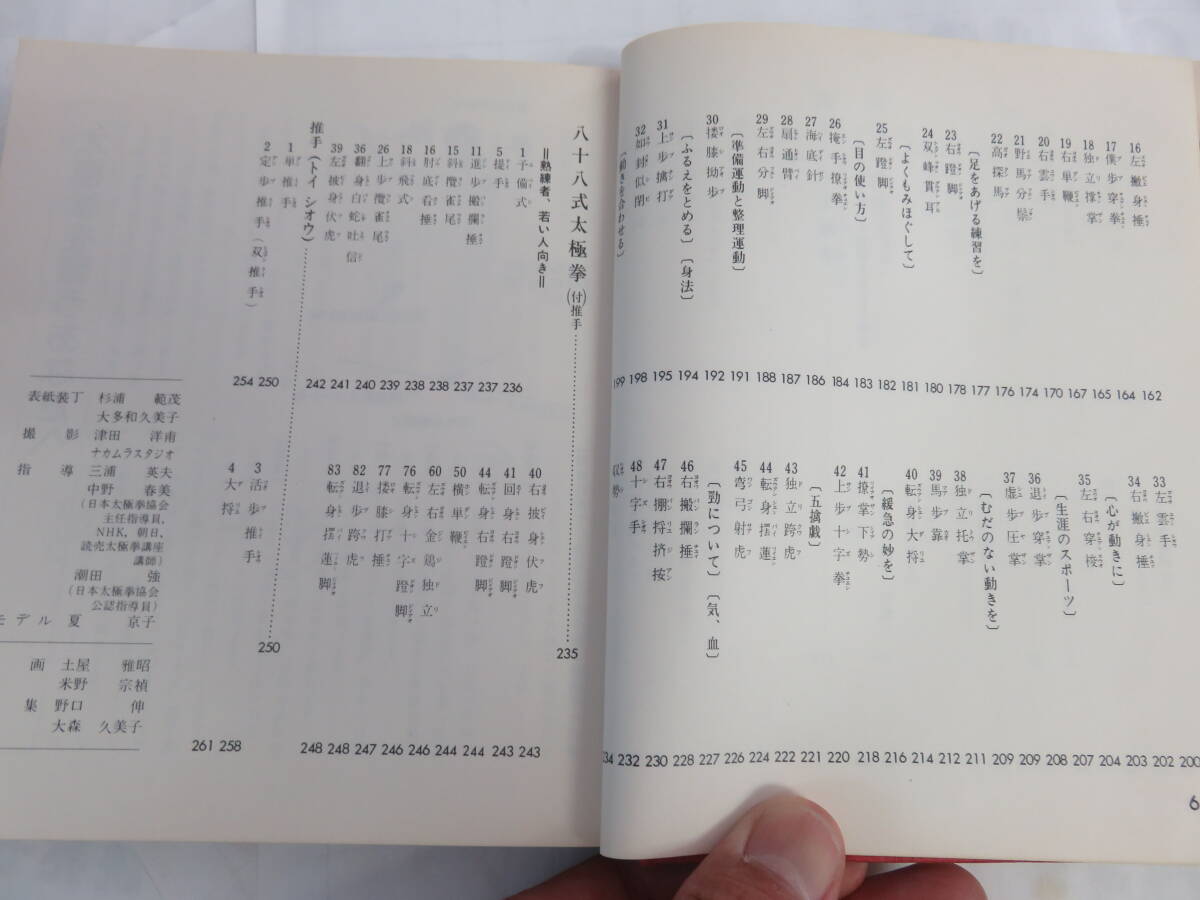 16 左撇身捶 162
17 僕歩穿拳 164
18 独立撑掌 165
19 右単鞭 167
20 右雲手 170
21 野馬分鬃 174
22 高探馬 176
〔足をあげる練習を〕 177
23 右蹬脚 178
24 双峰貫耳 180
〔よくもみほぐして〕 181
25 左蹬脚 182
〔目の使い方〕 183
26 掩手撩拳 184
27 海底針 186
28 扇通臂 187
29 左右分脚 188
〔準備運動と整理運動〕 191
30 搂膝拗歩 192
〔ふるえをとめる〕〔身法〕 194
31 上歩擒打 195
32 如封似閉 198
〔動きを合わせる〕 199
33 左雲手 200
34 右撇身捶 202
〔心が動きに〕 203
35 左右穿梭 204
〔生涯のスポーツ〕 207
36 退歩穿掌 208
37 虚歩圧掌 209
〔むだのない動きを〕 209
38 独立托掌 211
39 馬歩靠 212
40 転身大捋 214
〔緩急の妙を〕 216
41 撩掌下勢 218
42 上歩十字拳 220
〔五擒戯〕 221
43 独立跨虎 222
44 転身擺蓮 224
45 弯弓射虎 226
〔勁について〕〔気、血〕 227
46 右搬攔捶 228
47 右掤捋挤按 230
48 十字手 232
収勢 234
6
八十八式太極拳(付)推手 235
=熟練者、若い人向き=
1 予備式 236
5 提手 237
11 進歩搬攔捶 237
15 斜攬雀尾 238
16 肘底看捶 238
18 斜飛式 239
26 上歩攬雀尾 239
36 翻身白蛇吐信 240
39 左披身伏虎 241
40 右披身伏虎 243
41 回身右蹬脚 243
44 転身右蹬脚 244
50 横単鞭 244
60 左右金鶏独立 246
76 転身十字蹬脚 246
77 搂膝打捶 246
82 退歩跨虎 247
83 転身擺蓮脚 248
推手(トイ シオウ) 250
1 単推手 250
2 定歩推手(双推手) 254
3 活歩推手 258
4 大捋 261
表紙装丁 杉浦 範茂
大多和久美子
撮影 津田 洋甫
ナカムラスタジオ
指導 三浦 英夫
中野 春美
(日本太極拳協会
主任指導員、
NHK、朝日、
読売太極拳講座
講師)
潮田 強
(日本太極拳協会
公認指導員)
モデル 夏 京子
画 土屋 雅昭
米野 宗禎
集 野口 伸
大森 久美子